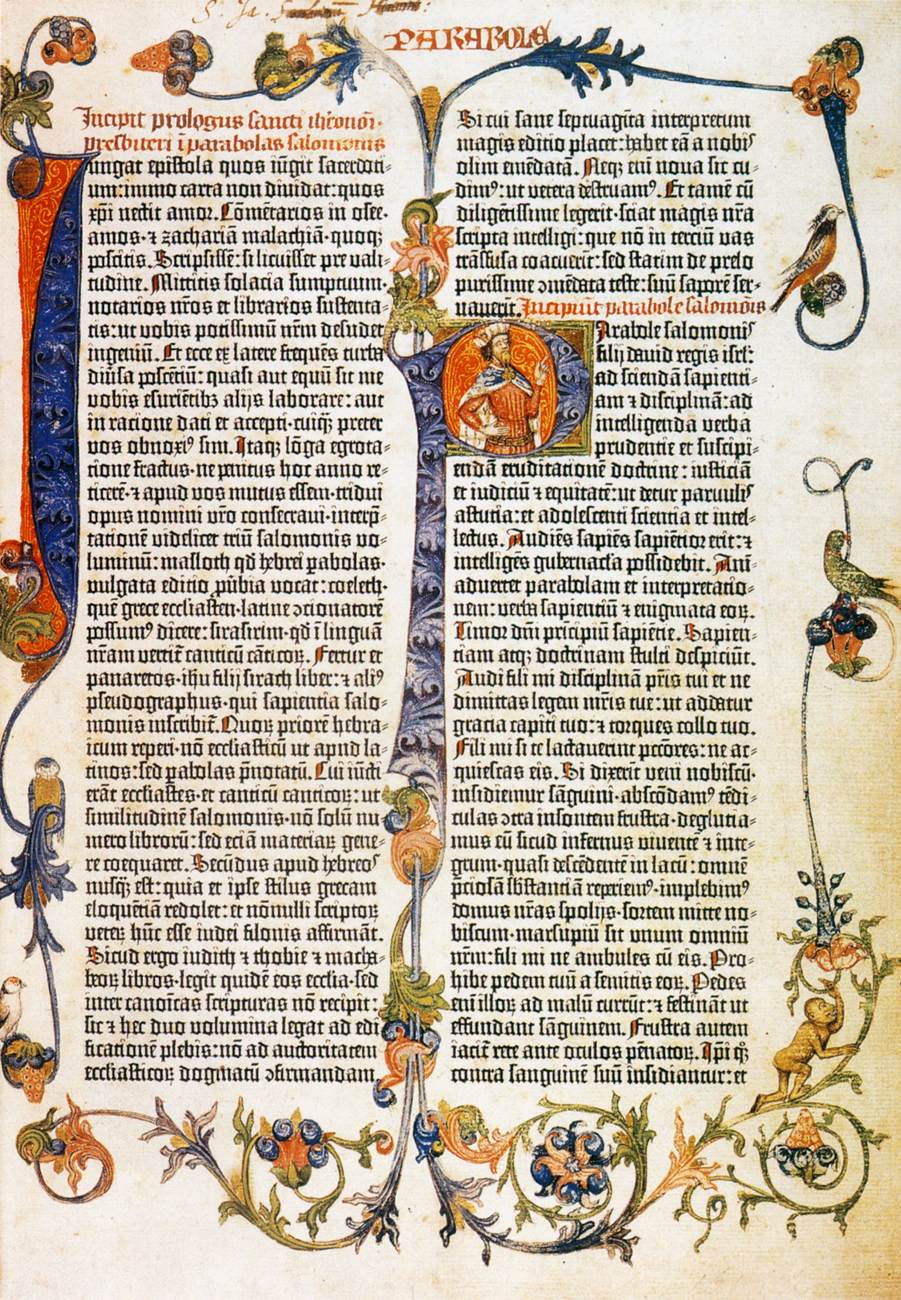 PARABOLE
Incipit prologus sancti iheronimi
presbiteri ī parabolas salomonis
Iungat epistola quos iūgit sacerdoti-
um: immo carta non dividat: quos
xp̄i nectit amor. Cōmētarios in osee.
amos. ⁊ zachariā malachiā. quoq₃
poscitis. Scripsissē: si licuisset pre vali-
tudine. Mittitis solacia sumptuum.
notarios nr̄os et librarios sustenta-
tis: ut vobis potissimū nr̄m desudet
ingeniū. Et ecce ex latere frequēs turba
diūsa poscētiū: quasi aut equū sit me
vobis esuriētib₃ alijs laborare: aut
in racione dati et accepti. cuiq̄₃ preter
vos obnoxiꝰ sim. Itaq₃ lōga egrota-
tione fractus. ne penitus hoc anno re-
ticerē. ⁊ apud vos mutus essem. tridui
opus nomini vr̄o consecravi. interp̄-
tationē videlicet triū salomonis vo-
luminū: masloth qd̄ hebrei ꝑabolas.
vulgata editio ꝓūbia vocat: coeleth.
quē grece ecclīasten. latine ɔcionatorē
possumꝰ dicere: sirasirim. qd̄ ī linguā
nr̄am vertit̄ canticū cāticoꝝ. Fertur et
panaretos. ihū filij sirach liber: ⁊ aliꝰ
pseudographus. qui sapientia salo-
monis inscribit̄. Quoꝝ priorē hebra-
icum reperi. nō ecclīasticū ut apud la-
tinos: sed ꝑabolas p̄notatū. Cui iūcti
erāt ecclīastes. et canticū canticoꝝ: ut
similitudinē salomonis. nō solū nu-
mero librorū: sed eciā materiaꝝ gene-
re coequaret. Secūdus apud hebreos
nusq̄₃ est: quia et ipse stilus grecam
eloquētiā redolet: et nōnulli scriptoꝝ
veteꝝ hūc esse iudei filonis affirmāt.
Sicud ergo iudith ⁊ thobie ⁊ macha-
beoꝝ libros. legit quidē eos eccīa. sed
inter canoīcas scripturas nō recipit:
sic ⁊ hec duo volumina legat ad edi-
ficationē plebis: nō ad auctoritatem
ecclīasticoꝝ dogmatū ɔfirmandam.
Si cui sane septuagīta interpretum
magis editio placet: habet eā a nobis
olim emēdatā. Neq₃ eni̅ nova sic cu-
dimꝰ: ut vetera destruamꝰ. Et tamē cū
diligētissime legerit. sciat magis nr̄a
scripta intelligi: que nō in terciū vas
trāsfusa coacuerīt: sed statim de prelo
purissime ɔmēdata teste: suū saporē ser-
vaverīt. Incipiūt parabole salomōis
Parabole salomonis
filij david regis isrl̄:
ad sciendā sapienti-
am ⁊ disciplinā: ad
intelligenda verba
prudentie et suscipi-
endā eruditationē doctrine: iusticiā
et iudiciū ⁊ equitatē: ut detur parvulis
astutia: et adolescenti scientia et intel-
lectus. Audiēs sapiēs sapiētior erit: ⁊
intelligēs gubernacla possidebit. Ani-
advertet parabolam et interpretatio-
nem: verba sapientiū ⁊ enigmata eoꝝ.
Timor dn̄i pricipiū sapiētie. Sapien-
tiam atq₃ doctrinam stulti despiciūt.
Audi fili mi disciplinā pr̄is tui et ne
dimittas legem mr̄is tue: ut addatur
gracia capiti tuo: ⁊ torques collo tuo.
Fili mi si te lactaverint pctōres: ne ac-
quiescas eis. Si dixerīt veni nobiscū.
insidiemur sāguini. abscōdamꝰ tēdi-
culas ɔtra insontem frustra. deglutia-
mus eū sicud infernus viventē ⁊ inte-
grum. quasi descēdentē in lacū: omnē
p̄ciosā sb̄stantiā reperiemꝰ. implebimꝰ
domus nr̄as spolijs. sortem mitte no-
biscum. marsupiū sit unum omniū
nr̄m: fili mi ne ambules cū eis. Pro-
hibe pedem tuū a semitis eoꝝ. Pedes
eni̅ illoꝝ ad malū currūt: ⁊ festināt ut
effundant sāguinem. Frustra autem
iacit̄ rete ante oculos pēnatoꝝ. Ip̄i q̄₃
contra sanguinē suū insidiantur: et